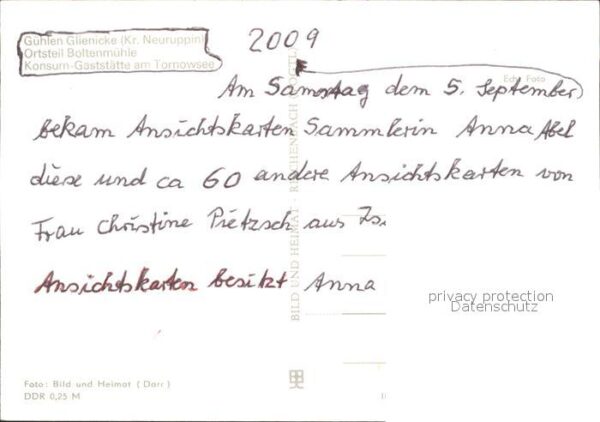 Gühlen Glienicke (Kr. Neuruppin)
Ortsteil Boltenmühle
Konsum-Gaststätte am Tornowsee
2009
Echt Foto
Am Samstag dem 5. September
bekam Ansichtskarten Sammlerin Anna Abel
diese und ca 60 andere Ansichtskarten von
Frau Christine Pietzsch aus
Ansichtskarten besitzt Anna
BILD UND HEIMAT · REICHENBACH (VOGTL)
privacy protection
Datenschutz
Foto: Bild und Heimat (Darr)
DDR 0,25 M